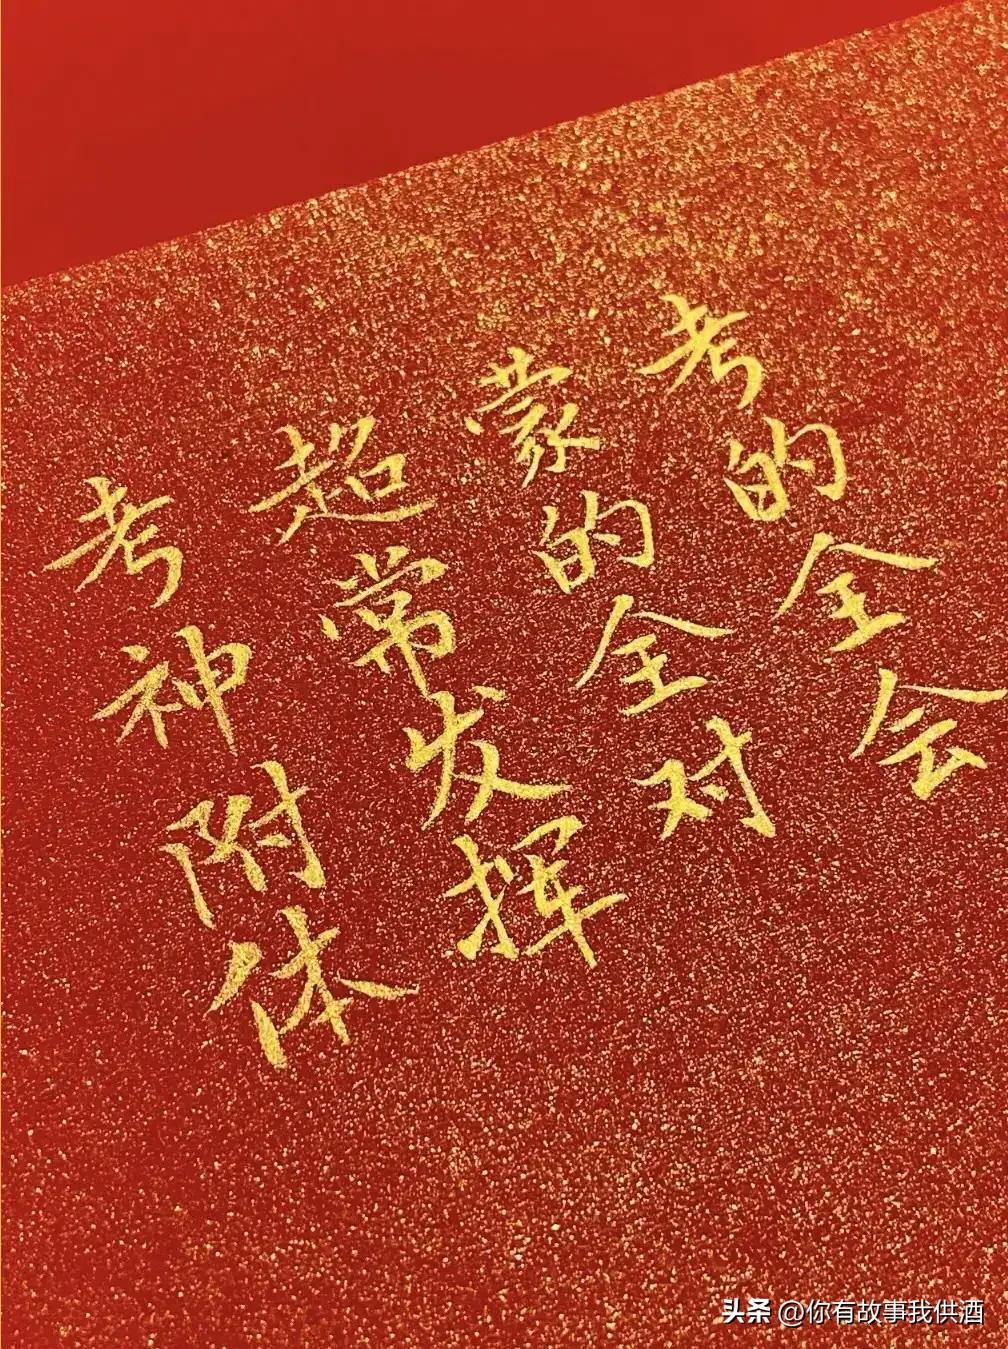 考的全会
蒙的全对
超常发挥
考神附体
头条 @你有故事我供酒